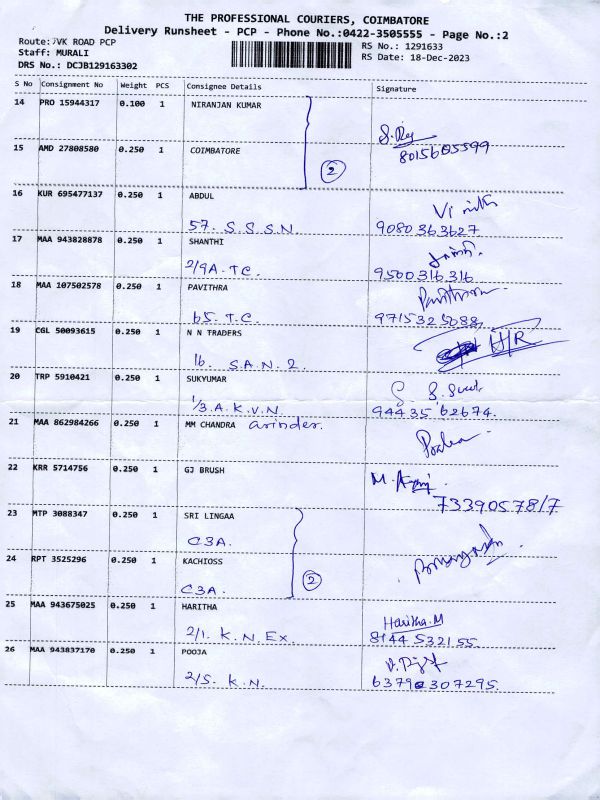 THE PROFESSIONAL COURIERS, COIMBATORE
Delivery Runsheet - PCP - Phone No.:0422-3505555 - Page No.:2
Route: VK ROAD PCP
Staff: MURALI
DRS No.: DCJB129163302
RS No.: 1291633
RS Date: 18-Dec-2023
S No Consignment No Weight PCS Consignee Details Signature
14 PRO 15944317 0.100 1 NIRANJAN KUMAR
15 AMD 27808580 0.250 1 COIMBATORE
2
8015605599
16 KUR 695477137 0.250 1 ABDUL
57. S.S.S.N. 9080363627
17 MAA 943828878 0.250 1 SHANTHI
2/9A.T.C. 9500316316
18 MAA 107502578 0.250 1 PAVITHRA
65.T.C. 9715325088
19 CGL 50093615 0.250 1 N N TRADERS H/R
16. S.A.N.2.
20 TRP 5910421 0.250 1 SUKYUMAR
1/3.A.K.V.N. 94435 62674.
21 MAA 862984266 0.250 1 MM CHANDRA
22 KRR 5714756 0.250 1 GJ BRUSH
7339057817
23 MTP 3088347 0.250 1 SRI LINGAA
C3A.
24 RPT 3525296 0.250 1 KACHIOSS
C3A. 2
25 MAA 943675025 0.250 1 HARITHA Haritha.M
2/1. K.N.Ex. 8144532155
26 MAA 943837170 0.250 1 POOJA
2/5. K.N. 6379 307295